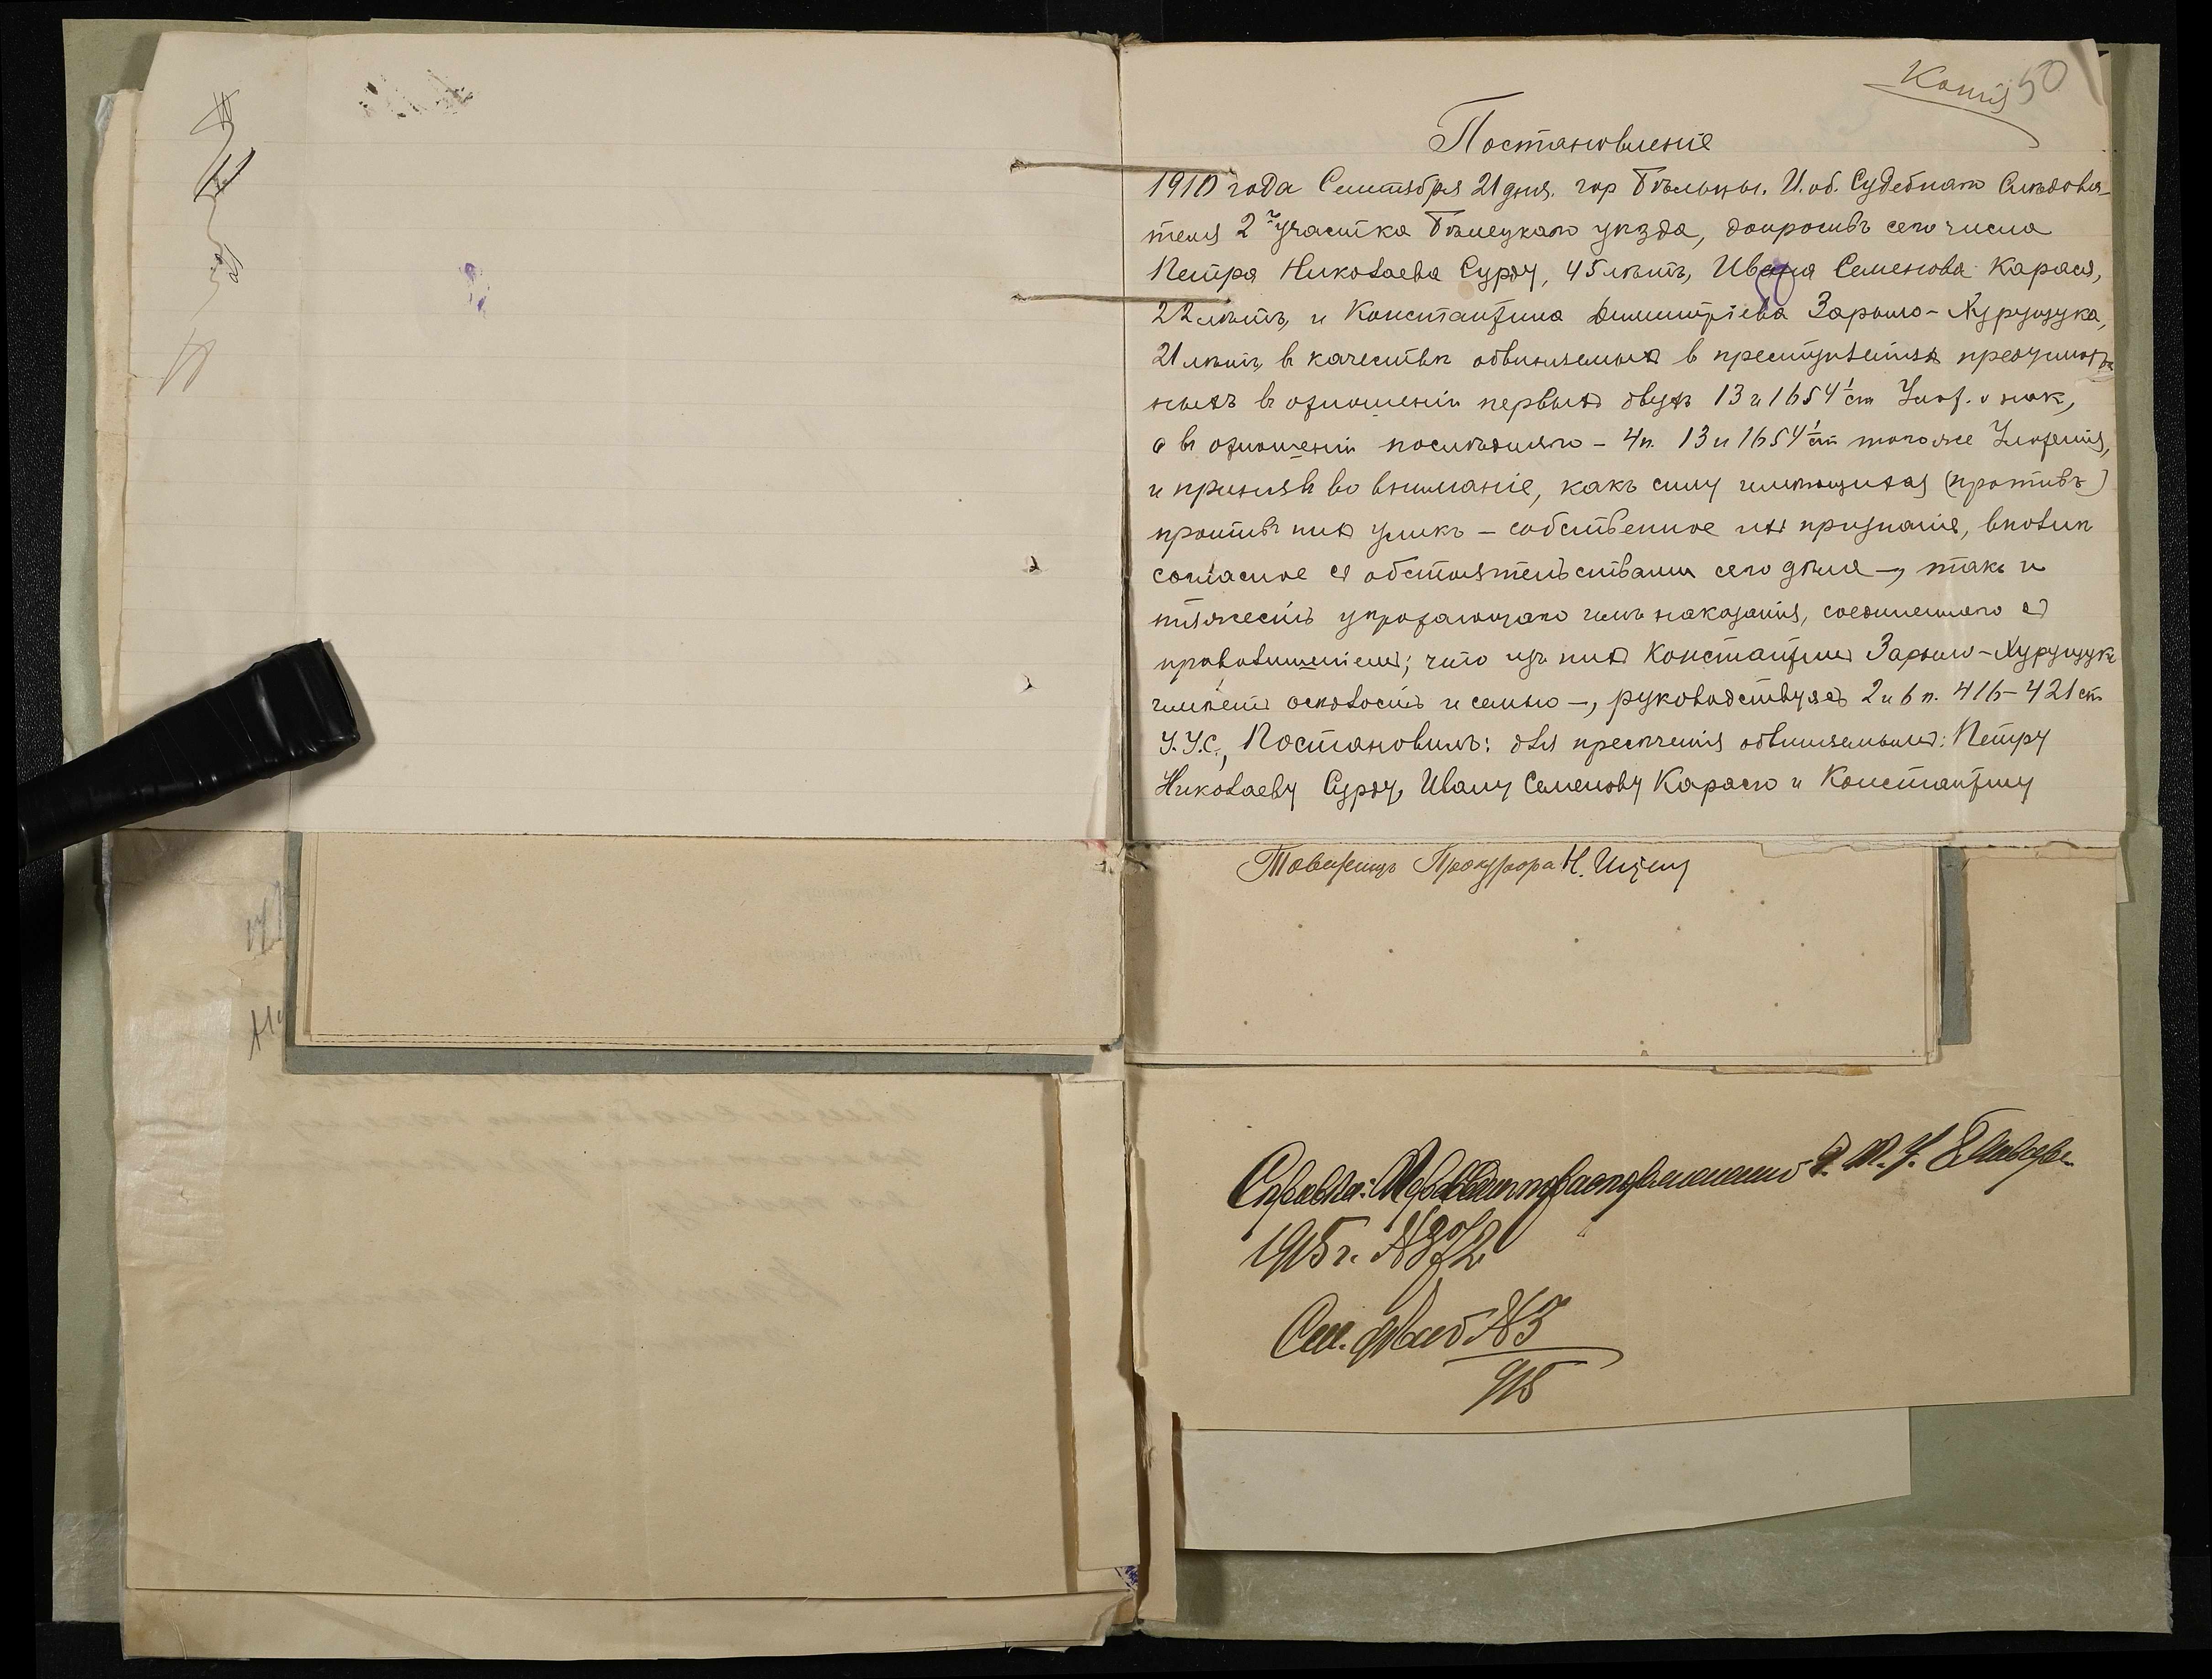 Копія 50
Постановленіе
1910 года Сентября 21 дня. гор Бѣльцы. И. об. Судебнаго Слѣдова-
теля 2 участка Бѣлецкаго уѣзда, допросивъ сего числа
Петра Николаева Сурду, 45 лѣтъ, Ивана Семенова Карася,
22 лѣтъ, и Константина Димитріева
21 лѣтъ, в качествѣ обвиняемыхъ в преступленіях предусмотрѣн
ныхъ въ отношеніи первыхъ двухъ 13 и 1654¹ ст Улож. о нак,
а въ отношеніи послѣдняго - 4 п. 13 и 1654¹ ст того же Уложенія,
и принявъ во вниманіе, какъ силу имѣющихся (противъ)
противъ нихъ уликъ - собственное их признаніе, вполнѣ
согласное съ обстоятельствами сего дѣла -, такъ и
тяжесть угрожающаго имъ наказанія, соединеннаго съ
праволишеніемъ; что изъ нихъ Константинъ
имѣетъ осѣдлость и семью -, руководствуясь 2 и 6 п. 416-421 ст
У.У.С., Постановилъ: для пресѣченія обвиняемымъ: Петру
Николаеву Сурду, Ивану Семенову Карасю и Константину
Товарищъ Прокурора Н.
Справка:
1915 г. №
См. № 3
915